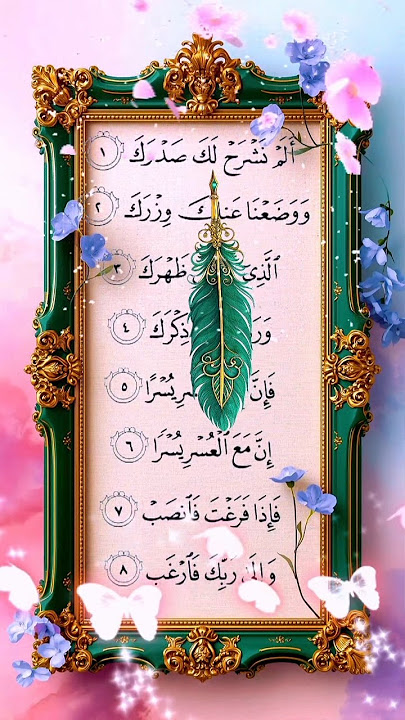 أَلَمْ نَشْرَحْ لَكَ صَدْرَكَ ١
وَوَضَعْنَا عَنكَ وِزْرَكَ ٢
ٱلَّذِي ظَهْرَكَ ٣
ذِكْرَكَ ٤
فَإِنَّ يُسْرًا ٥
إِنَّ مَعَ ٱلْعُسْرِ يُسْرًا ٦
فَإِذَا فَرَغْتَ فَٱنصَبْ ٧
وَإِلَىٰ رَبِّكَ فَٱرْغَب ٨